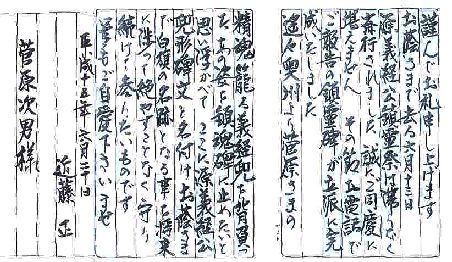 謹んで お礼申し上げます
お蔭さまで去る六月十三日
源義経公鎮霊祭は滞りなく
斎行されました 誠にご同慶に
堪えません その節お電話で
ご報告の鎮霊碑が立派に完
成いたしました
遠く奥州より菅原さまの
精魂籠る義経兜を背負っ
たあの姿を鎮魂碑に止めたいと
思い浮かべて ここに源義経公
兜形碑文と名付け お蔭さま
で白旗の名跡となる事を将来
に渉って絶やすことなく守り
続け参りたいものです
どうぞご自愛下さいませ
平成十五年六月二十日
近藤 正
菅原次男様